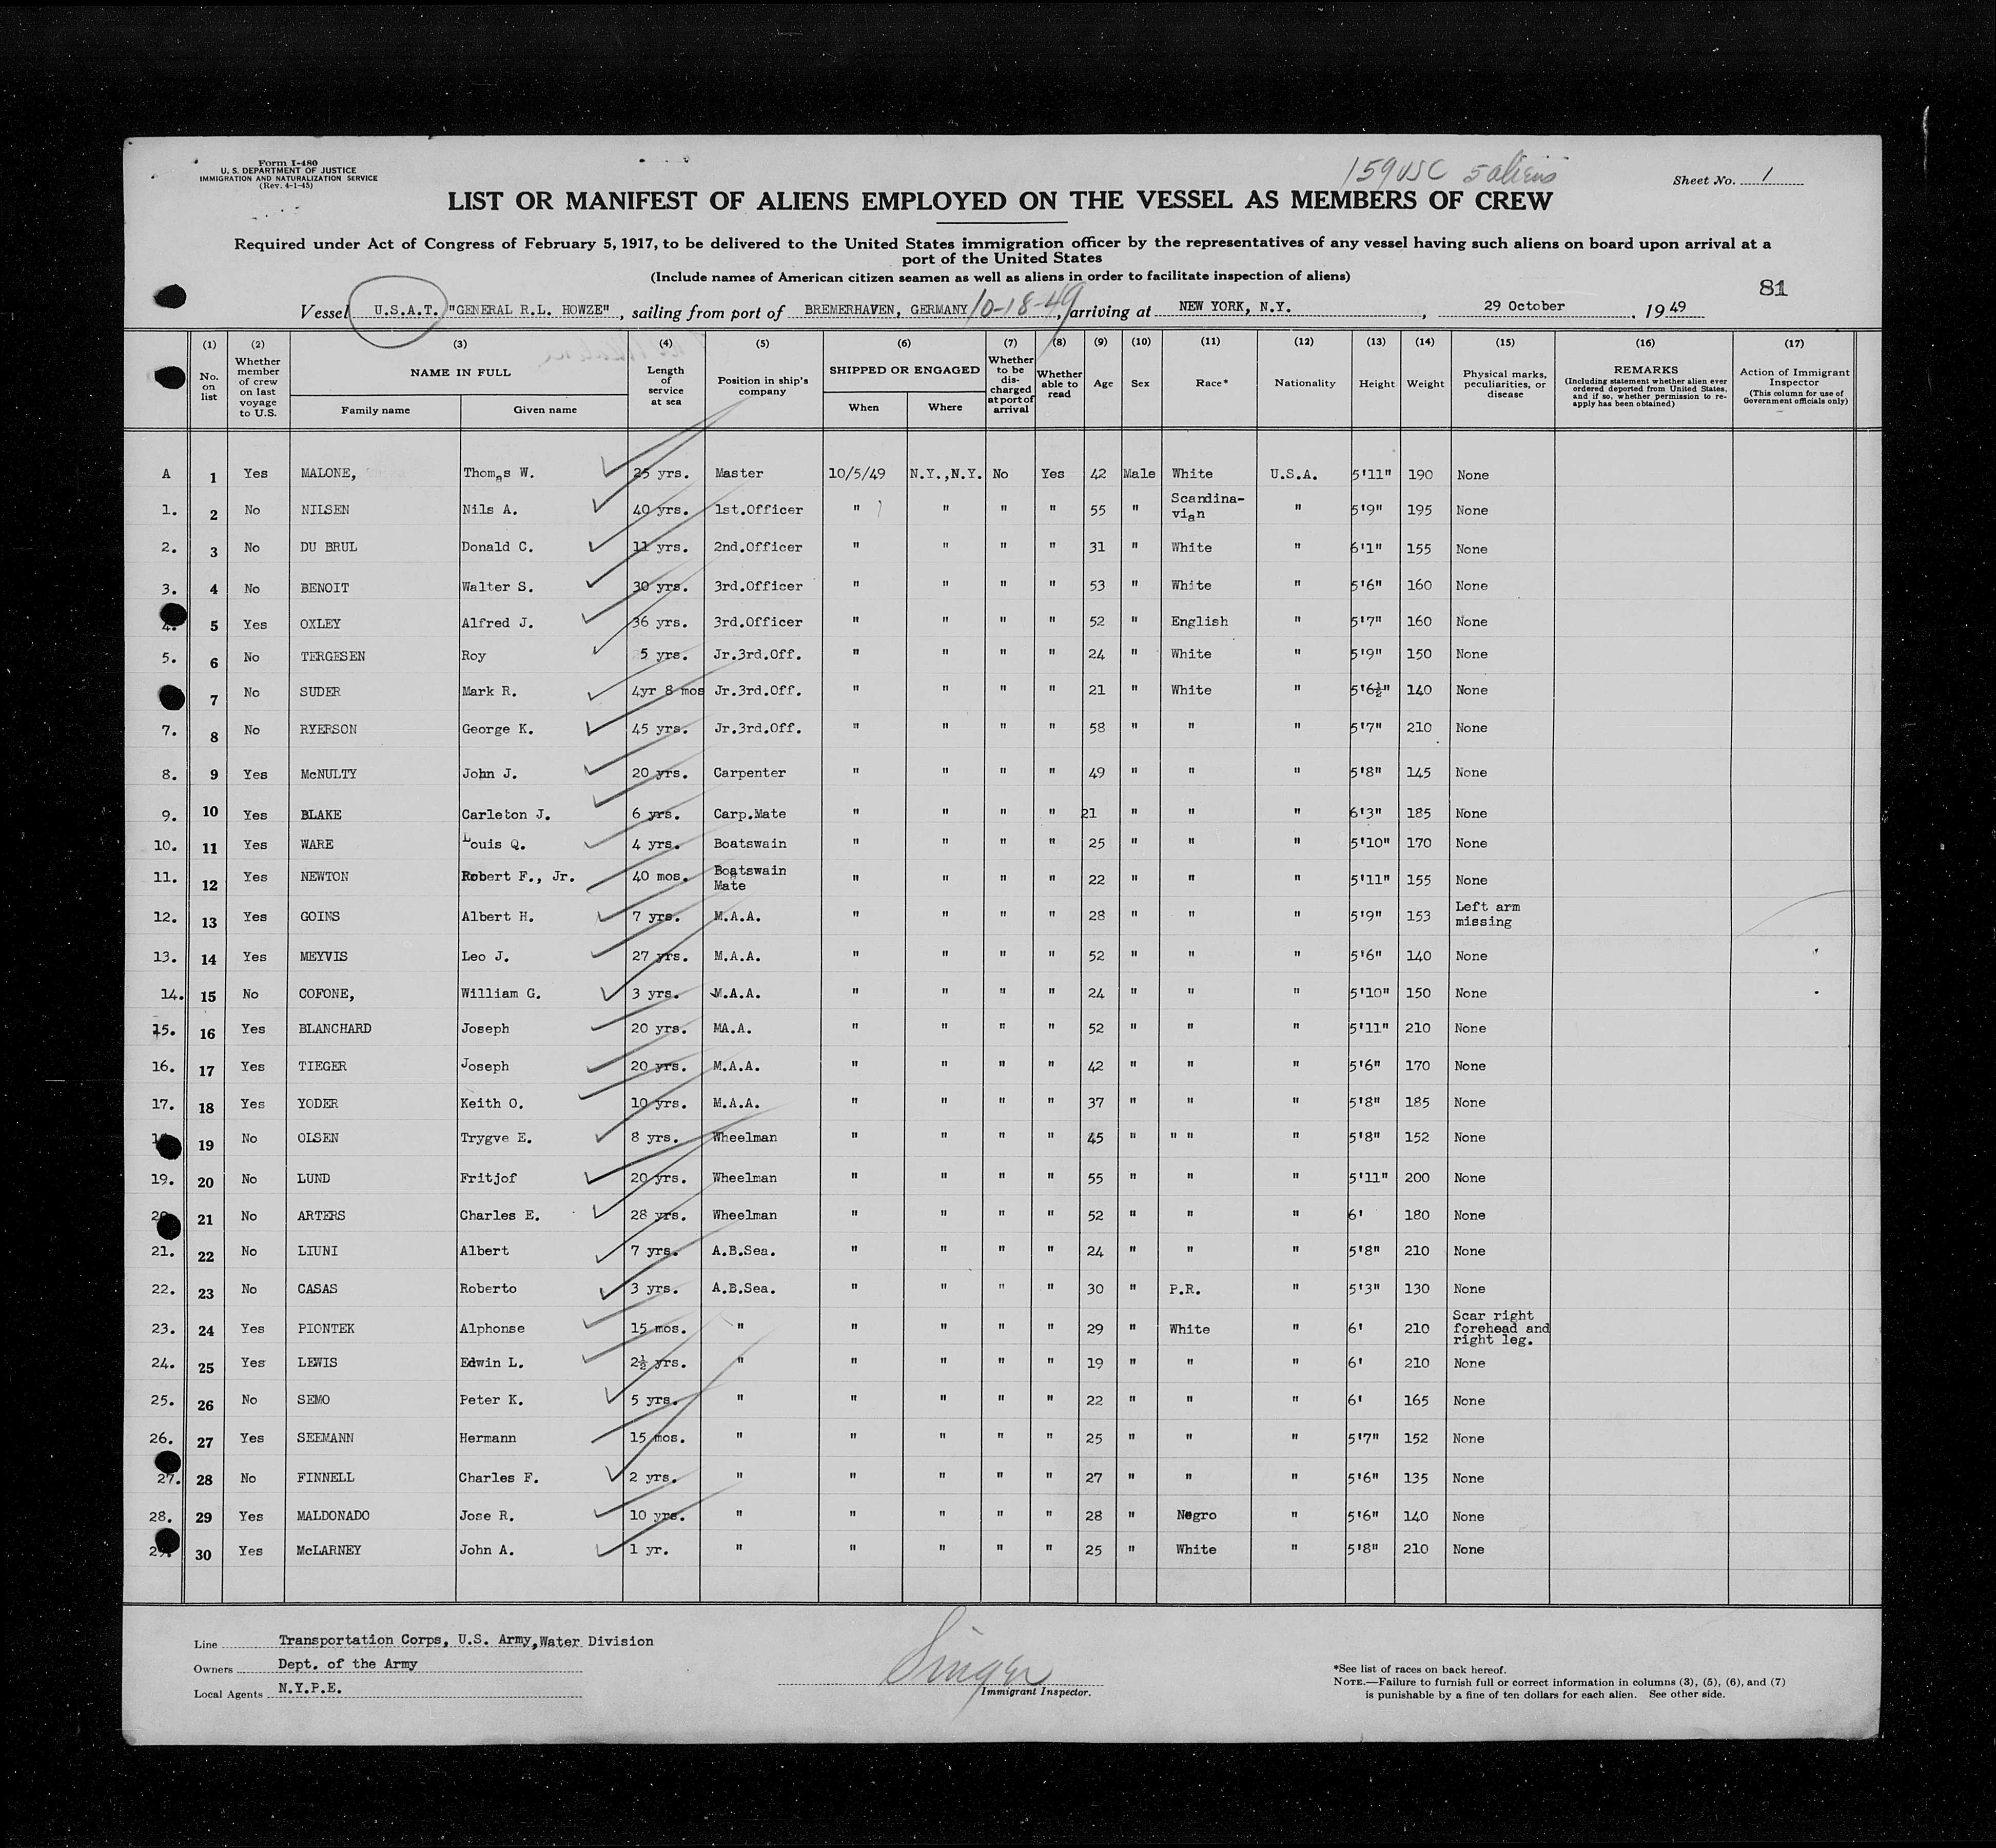 Form I-480
U. S. DEPARTMENT OF JUSTICE
IMMIGRATION AND NATURALIZATION SERVICE
(Rev. 4-1-45)
159 USC 5 aliens
Sheet No. 1
LIST OR MANIFEST OF ALIENS EMPLOYED ON THE VESSEL AS MEMBERS OF CREW
Required under Act of Congress of February 5, 1917, to be delivered to the United States immigration officer by the representatives of any vessel having such aliens on board upon arrival at a
port of the United States
(Include names of American citizen seamen as well as aliens in order to facilitate inspection of aliens)
81
Vessel U.S.A.T. "GENERAL R.L. HOWZE", sailing from port of BREMERHAVEN, GERMANY 10-18-49, arriving at NEW YORK, N.Y., 29 October, 1949
(1) No. on list (2) Whether member of crew on last voyage to U.S. (3) NAME IN FULL Family name Given name (4) Length of service at sea (5) Position in ship's company (6) SHIPPED OR ENGAGED When Where (7) Whether to be discharged at port of arrival (8) Whether able to read (9) Age (10) Sex (11) Race* (12) Nationality (13) Height (14) Weight (15) Physical marks, peculiarities, or disease (16) REMARKS (Including statement whether alien ever ordered deported from United States, and if so, whether permission to reapply has been obtained) (17) Action of Immigrant Inspector (This column for use of Government officials only)
A 1 Yes MALONE, Thomas W. 25 yrs. Master 10/5/49 N.Y.,N.Y. No Yes 42 Male White U.S.A. 5'11" 190 None
1. 2 No NILSEN Nils A. 40 yrs. 1st.Officer " " " " 55 " Scandina-vian " 5'9" 195 None
2. 3 No DU BRUL Donald C. 11 yrs. 2nd.Officer " " " " 31 " White " 6'1" 155 None
3. 4 No BENOIT Walter S. 30 yrs. 3rd.Officer " " " " 53 " White " 5'6" 160 None
4. 5 Yes OXLEY Alfred J. 36 yrs. 3rd.Officer " " " " 52 " English " 5'7" 160 None
5. 6 No TERGESEN Roy 5 yrs. Jr.3rd.Off. " " " " 24 " White " 5'9" 150 None
7 No SUDER Mark R. 4yr 8 mos Jr.3rd.Off. " " " " 21 " White " 5'6½" 140 None
7. 8 No RYERSON George K. 45 yrs. Jr.3rd.Off. " " " " 58 " " " 5'7" 210 None
8. 9 Yes McNULTY John J. 20 yrs. Carpenter " " " " 49 " " " 5'8" 145 None
9. 10 Yes BLAKE Carleton J. 6 yrs. Carp.Mate " " " " 21 " " " 6'3" 185 None
10. 11 Yes WARE Louis Q. 4 yrs. Boatswain " " " " 25 " " " 5'10" 170 None
11. 12 Yes NEWTON Robert F., Jr. 40 mos. Boatswain Mate " " " " 22 " " " 5'11" 155 None
12. 13 Yes GOINS Albert H. 7 yrs. M.A.A. " " " " 28 " " " 5'9" 153 Left arm missing
13. 14 Yes MEYVIS Leo J. 27 yrs. M.A.A. " " " " 52 " " " 5'6" 140 None
14. 15 No COFONE, William G. 3 yrs. M.A.A. " " " " 24 " " " 5'10" 150 None
15. 16 Yes BLANCHARD Joseph 20 yrs. MA.A. " " " " 52 " " " 5'11" 210 None
16. 17 Yes TIEGER Joseph 20 yrs. M.A.A. " " " " 42 " " " 5'6" 170 None
17. 18 Yes YODER Keith O. 10 yrs. M.A.A. " " " " 37 " " " 5'8" 185 None
19 No OLSEN Trygve E. 8 yrs. Wheelman " " " " 45 " " " " 5'8" 152 None
19. 20 No LUND Fritjof 20 yrs. Wheelman " " " " 55 " " " 5'11" 200 None
20 21 No ARTERS Charles E. 28 yrs. Wheelman " " " " 52 " " " 6' 180 None
21. 22 No LIUNI Albert 7 yrs. A.B.Sea. " " " " 24 " " " 5'8" 210 None
22. 23 No CASAS Roberto 3 yrs. A.B.Sea. " " " " 30 " P.R. " 5'3" 130 None
23. 24 Yes PIONTEK Alphonse 15 mos. " " " " " 29 " White " 6' 210 Scar right forehead and right leg.
24. 25 Yes LEWIS Edwin L. 2½ yrs. " " " " " 19 " " " 6' 210 None
25. 26 No SEMO Peter K. 5 yrs. " " " " " 22 " " " 6' 165 None
26. 27 Yes SEEMANN Hermann 15 mos. " " " " " 25 " " " 5'7" 152 None
27. 28 No FINNELL Charles F. 2 yrs. " " " " " 27 " " " 5'6" 135 None
28. 29 Yes MALDONADO Jose R. 10 yrs. " " " " " 28 " Negro " 5'6" 140 None
29. 30 Yes McLARNEY John A. 1 yr. " " " " " 25 " White " 5'8" 210 None
Line Transportation Corps, U.S. Army, Water Division
Owners Dept. of the Army
Local Agents N.Y.P.E.
Singer
Immigrant Inspector.
*See list of races on back hereof.
NOTE.—Failure to furnish full or correct information in columns (3), (5), (6), and (7)
is punishable by a fine of ten dollars for each alien. See other side.